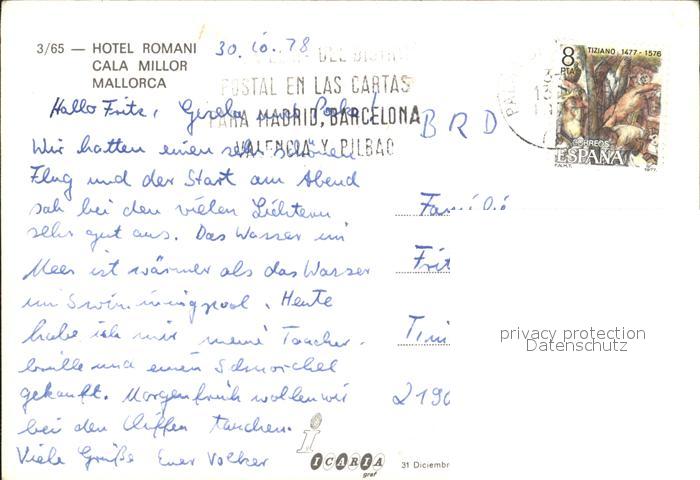 3/65 — HOTEL ROMANI
CALA MILLOR
MALLORCA
30.10.78
POSTAL EN LAS CARTAS
PARA MADRID, BARCELONA
VALENCIA Y BILBAO
8 PTA
TIZIANO 1477-1576
CORREOS
ESPAÑA
F.N.M.T. 1977
Hallo Fritz, Gisela und
Wir hatten einen sehr schönen
Flug und der Start am Abend
sah bei den vielen Lichtern
sehr gut aus. Das Wasser im
Meer ist wärmer als das Wasser
im Swimmingpool. Heute
habe ich mir meine Taucher-
brille und einen Schnorchel
gekauft. Morgen früh wollen wir
bei den Cliffen tauchen.
Viele Grüße Euer Volker
BRD
Famili
Frit
2190
privacy protection
Datenschutz
ICARIA
graf
31 Diciembr